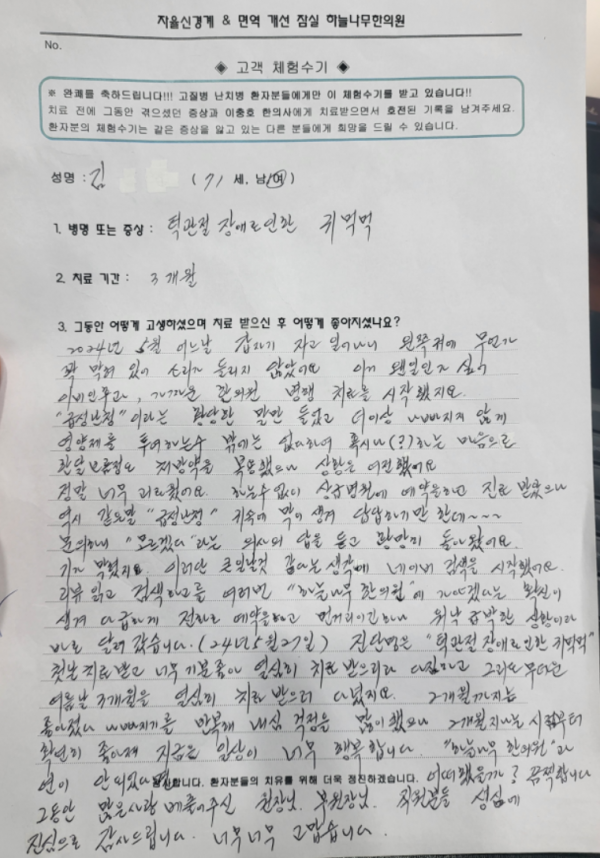 자율신경계 & 면역 개선 잠실 하늘나무한의원
No.
◈ 고객 체험수기 ◈
※ 완쾌를 축하드립니다!!! 고질병 난치병 환자분들에게만 이 체험수기를 받고 있습니다!!
치료 전에 그동안 겪으셨던 증상과 이충호 한의사에게 치료받으면서 호전된 기록을 남겨주세요.
환자분의 체험수기는 같은 증상을 앓고 있는 다른 분들에게 희망을 드릴 수 있습니다.
성명 : 김 ( 71 세, 남/여)
1. 병명 또는 증상 : 턱관절 장애로인한 귀먹먹
2. 치료 기간 : 3개월
3. 그동안 어떻게 고생하셨으며 치료 받으신 후 어떻게 좋아지셨나요?
2024년 5월 어느날 갑자기 자고 일어나니 왼쪽귀에 무언가
꽉 막혀 있어 소리가 들리지 않았어요 이게 웬일인가 싶어
이비인후과, 가까운 한의원 병행 치료를 시작했지요.
"급성난청" 이라는 황당한 말만 듣었고 더이상 나빠지지 않게
영양제를 투여하는수 밖에는 없다하여 혹시나(?)하는 마음으로
한달 보름정도 처방약을 복용했으나 상황은 여전했어요
정말 너무 괴로웠어요. 하는수없이 상급병원에 예약을하고 진료 받았으나
역시 같은말 "급성난청" 귀속에 막이 생겨 답답하기만 한데~~~~
문의하니 "모르겠다" 라는 의사의 답을 듣고 황망히 돌아왔어요.
기가 막혔지요. 이러단 큰일날것 같다는생각에 네이버 검색을 시작했어요.
리뷰 읽고 검색하고를 여러번 "하늘나무 한의원"에 가야겠다는 확신이
생겨 다급하게 전화로 예약을하고 먼거리이긴하나 워낙 급박한 상황이라
바로 달려 갔습니다. (24년 5월 27일) 진단명은 "턱관절 장애로인한 귀먹먹"
첫날 치료받고 너무 기분좋아 열심히 치료 받으리라 다짐하고 그리도 무더운
여름날 3개월을 열심히 치료 받으러 다녔지요. 2개월까지는
좋아졌다 나빠지기를 반복해 내심 걱정을 많이했으나 2개월지나는 시점부터
확연히 좋아져 지금은 일상이 너무 행복합니다. "하늘나무 한의원"과
연이 안되었다면 감사합니다. 환자분들의 치유를 위해 더욱 정진하겠습니다. 어떠했을까? 끔찍합니다
그동안 많은사랑 베풀어주신 원장님. 부원장님. 직원분들 성심에
진심으로 감사드립니다. 너무너무 고맙습니다.